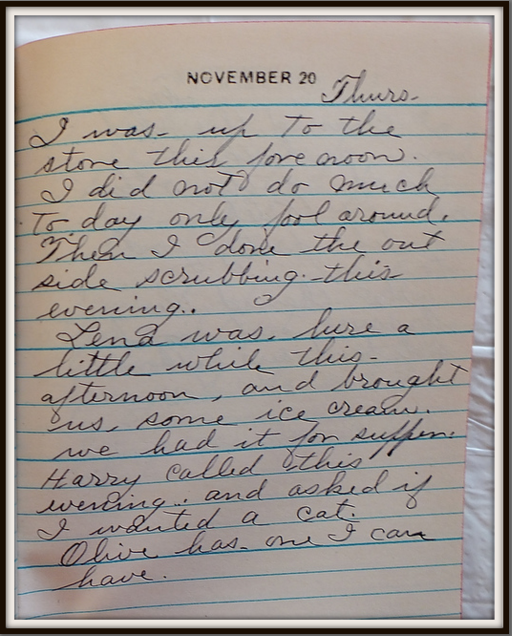 NOVEMBER 20 Thurs.
I was up to the
store this forenoon.
I did not do much
to day only fool around.
Then I done the out
side scrubbing this
evening.
Lena was here a
little while this
afternoon, and brought
us some ice cream.
we had it for supper.
Harry called this
evening. and asked if
I wanted a cat.
Olive has one I can
have.